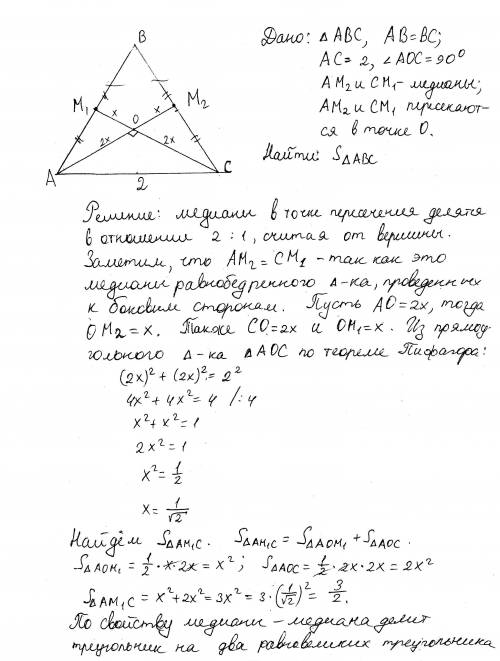 B
Дано: △ABC, AB=BC;
AC=2, ∠AOC=90°
AM₂ и CM₁- медианы;
AM₂ и CM₁ пересекают-
ся в точке O.
Найти: S△ABC
M₁ x x M₂
O
2x 2x
A 2 C
Решение: медианы в точке пересечения делятся
в отношении 2:1, считая от вершины.
Заметим, что AM₂=CM₁ - так как это
медианы равнобедренного △-ка, проведенных
к боковым сторонам. Пусть AO=2x, тогда
OM₂=x. Также CO=2x и OM₁=x. Из прямо-
угольного △-ка △AOC по теореме Пифагора:
(2x)²+(2x)²=2²
4x²+4x²=4 /:4
x²+x²=1
2x²=1
x²=1/2
x=1/√2
Найдём S△AM₁C. S△AM₁C = S△AOM₁ + S△AOC.
S△AOM₁ = 1/2·x·2x = x²; S△AOC = 1/2·2x·2x = 2x²
S△AM₁C = x²+2x²=3x²=3·(1/√2)²=3/2.
По свойству медианы - медиана делит
треугольник на два равновеликих треугольника